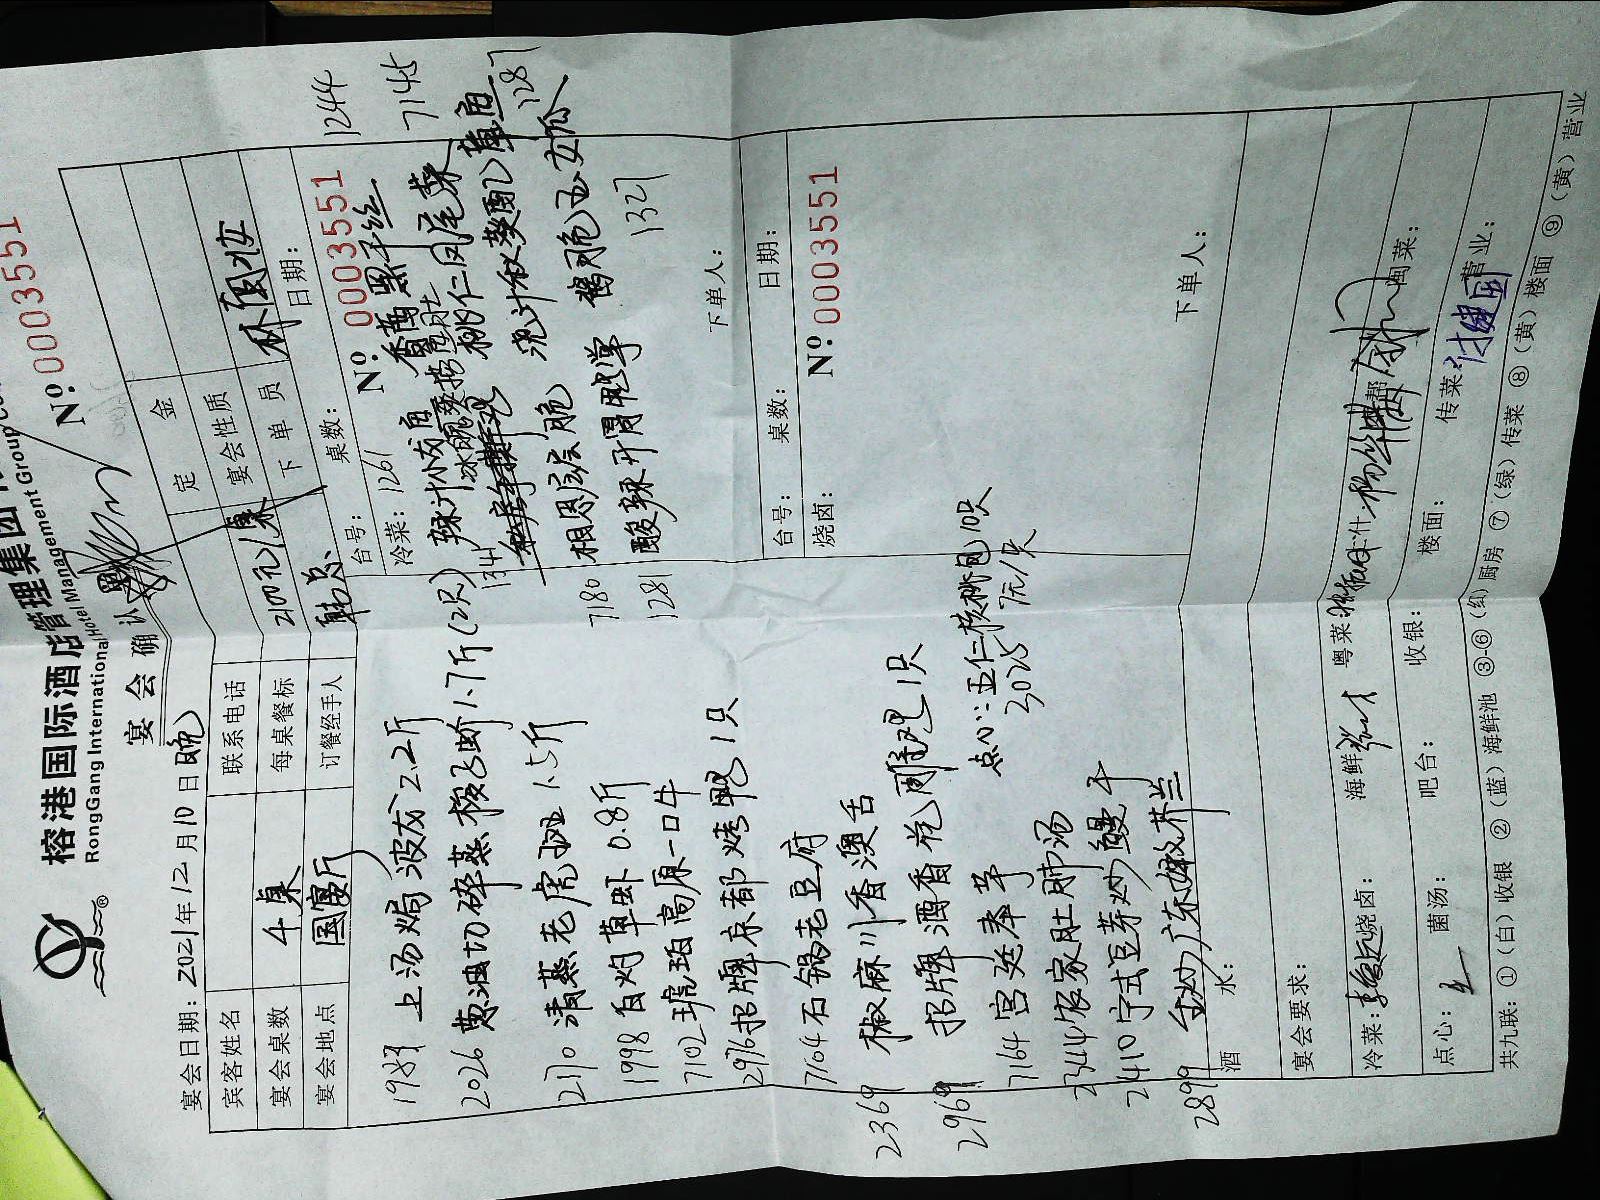 榕港国际酒店管理集团
RongGang International Hotel Management Group
№ 0003551
宴会确认
宴会日期：2021年12月10日晚
定金
宾客姓名
联系电话
宴会性质
宴会桌数 4桌
每桌餐标 2100元/桌
下单员
宴会地点 国宴厅
订餐经手人 韩总
日期：
1983 上汤焗波龙2.2斤
2026 葱油切碎蒸 1.7斤（2只）
2170 清蒸老虎斑 1.5斤
1998 白灼草虾 0.8斤
7102 琥珀高原一口牛
2976 招牌京都烤鸭1只
7164 石锅老豆腐
2369 椒麻川香澳舌
2969 招牌酒香花雕鸡1只
7164 宫廷奉芋
2344 农家肚肺汤
2410 宁式豆芽炒鳗干
2899 金炒广东嫩芥兰
点心：亚仁核桃包10只
3025 7元/只
台号：
桌数：
№ 0003551
冷菜：1261 辣汁小龙鱼
1244
7145
桃仁凤尾菜
1341
1287
7180 相思层层脆
1281 酸辣开胃
1327
下单人：
台号：
桌数：
日期：
烧卤：
№ 0003551
下单人：
酒水：
宴会要求：
冷菜：
烧卤：
海鲜
粤菜
杭帮
闽菜：
点心：
菌汤：
吧台：
收银：
楼面：
传菜：
营业：
共九联：①（白）收银 ②（蓝）海鲜池 ③-⑥（红）厨房 ⑦（绿）传菜 ⑧（黄）楼面 ⑨（黄）营业